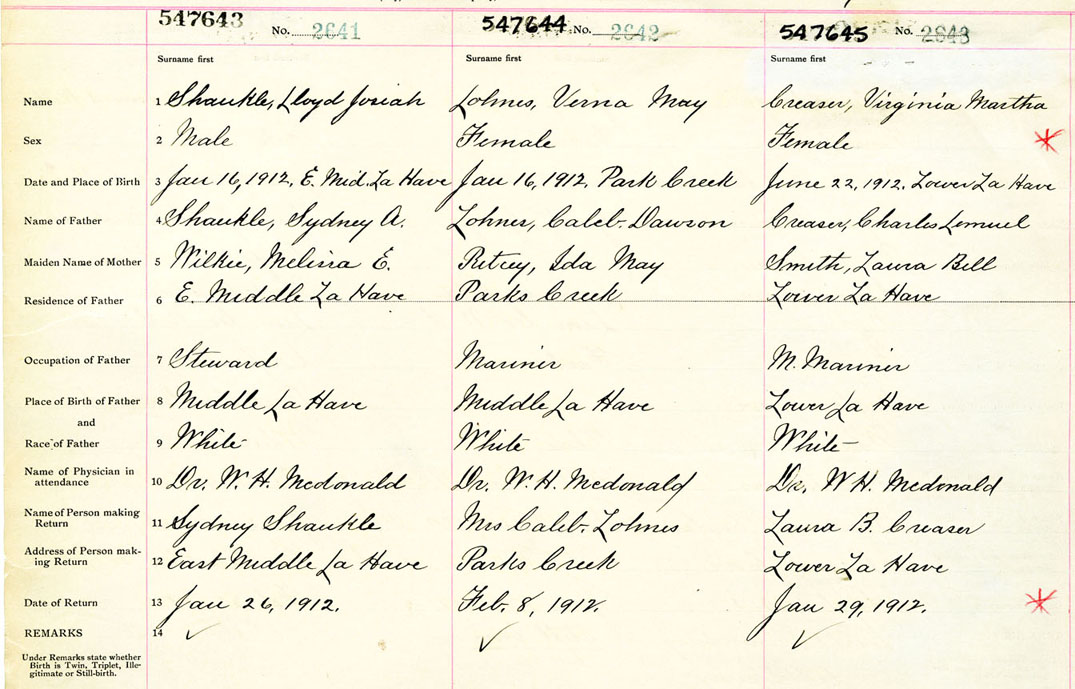 547643 No. 2641 547644 No. 2642 547645 No. 2643
Surname first Surname first Surname first
Name 1 Shankle, Lloyd Josiah Lohnes, Verna May Creaser, Virginia Martha
Sex 2 Male Female Female
Date and Place of Birth 3 Jan 16, 1912, E. Mid. La Have Jan 16, 1912. Park Creek June 22, 1912. Lower La Have
Name of Father 4 Shankle, Sydney A. Lohnes, Caleb Dawson Creaser, Charles Lemuel
Maiden Name of Mother 5 Wilkie, Melissa E. Ritcey, Ida May Smith, Laura Bell
Residence of Father 6 E. Middle La Have Parks Creek Lower La Have
Occupation of Father 7 Steward Mariner M. Mariner
Place of Birth of Father 8 Middle La Have Middle La Have Lower La Have
and
Race of Father 9 White White White
Name of Physician in
attendance 10 Dr. W. H. Mcdonald Dr. W. H. Mcdonald Dr. W H. Mcdonald
Name of Person making
Return 11 Sydney Shankle Mrs Caleb Lohnes Laura B. Creaser
Address of Person mak-
ing Return 12 East Middle La Have Parks Creek Lower La Have
Date of Return 13 Jan 26, 1912. Feb. 8, 1912. Jan 29, 1912.
REMARKS 14
Under Remarks state whether
Birth is Twin, Triplet, Ille-
gitimate or Still-birth.